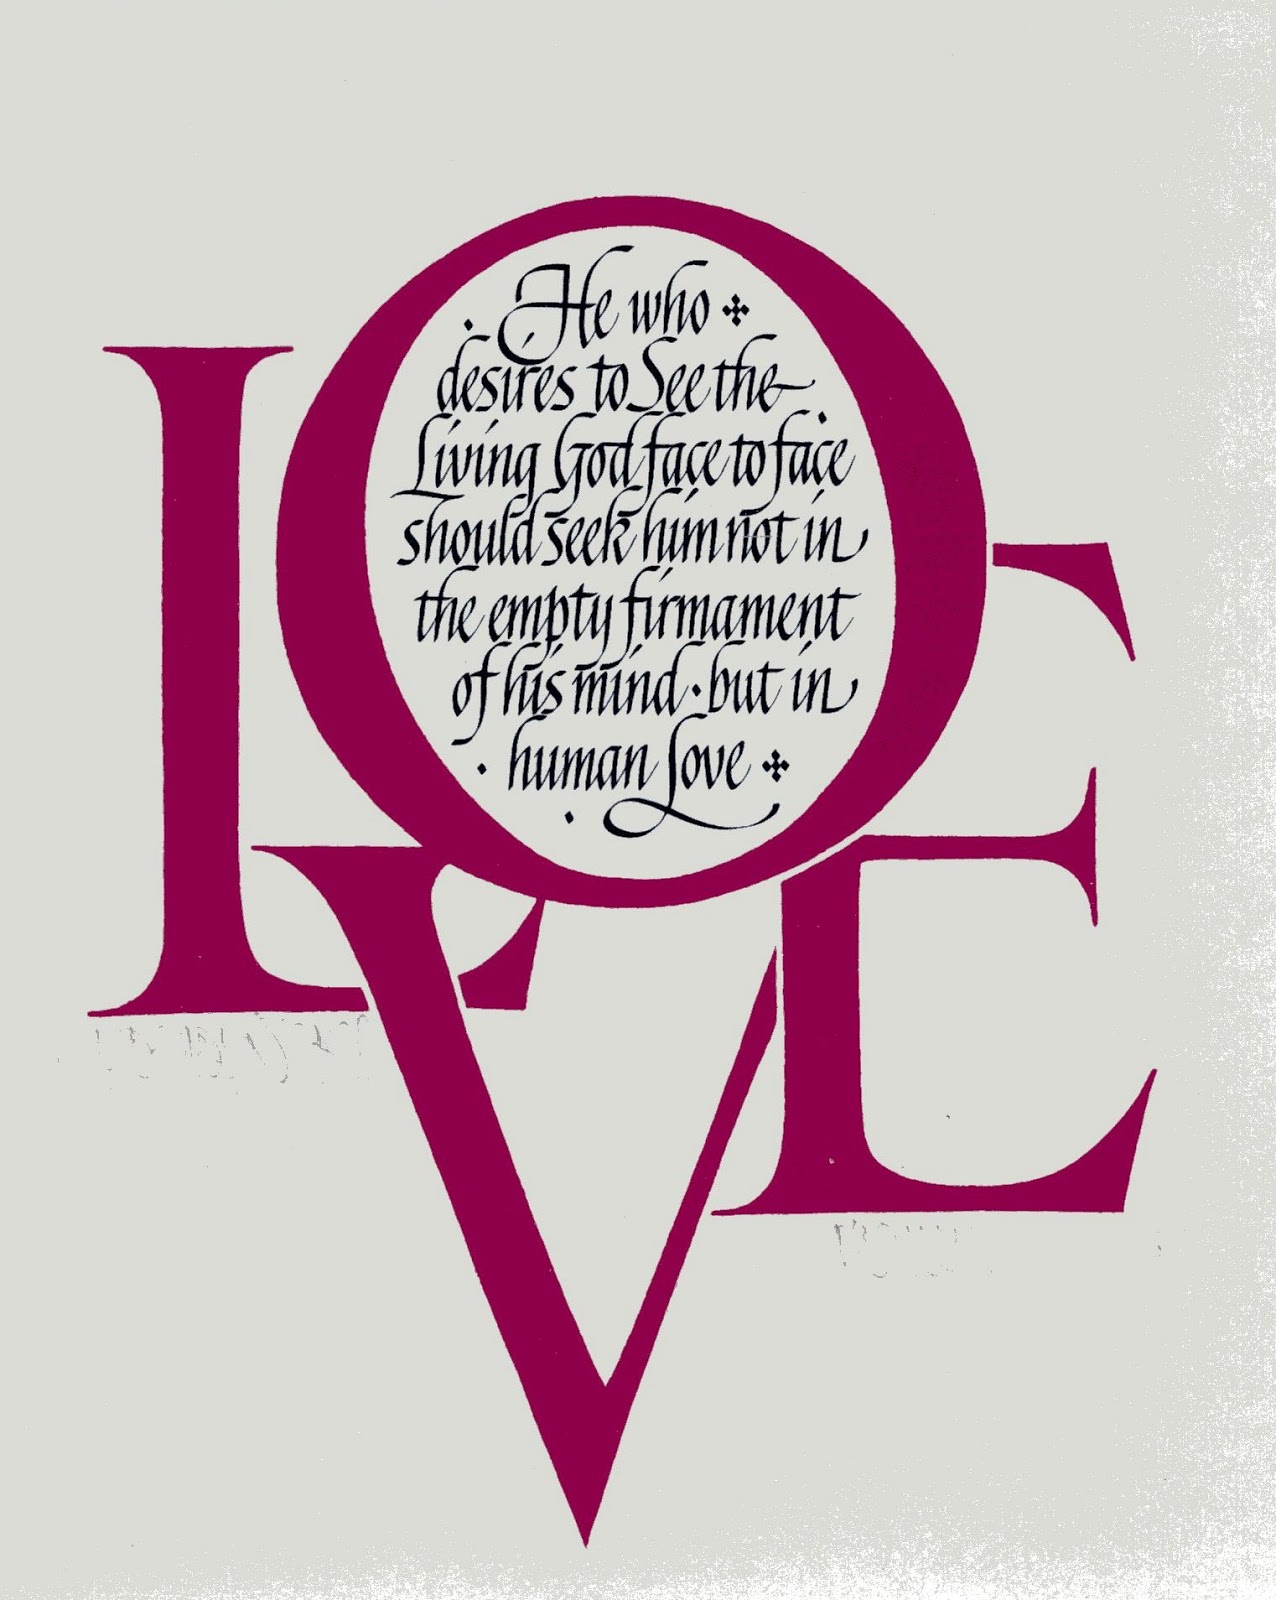 LOVE
He who
desires to See the
Living God face to face
should seek him not in
the empty firmament
of his mind · but in
human Love